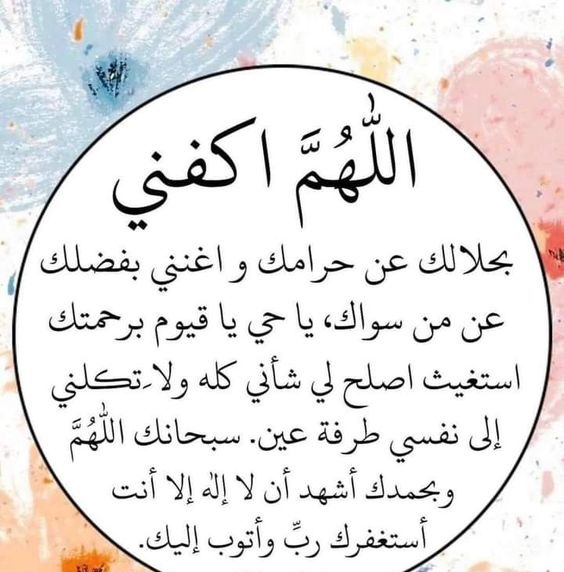 اللّٰهُمَّ اكفني
بحلالك عن حرامك و اغنني بفضلك
عن من سواك، يا حي يا قيوم برحمتك
استغيث اصلح لي شأني كله ولا تكلني
إلى نفسي طرفة عين. سبحانك اللّٰهُمَّ
وبحمدك أشهد أن لا إله إلا أنت
أستغفرك ربِّ وأتوب إليك.